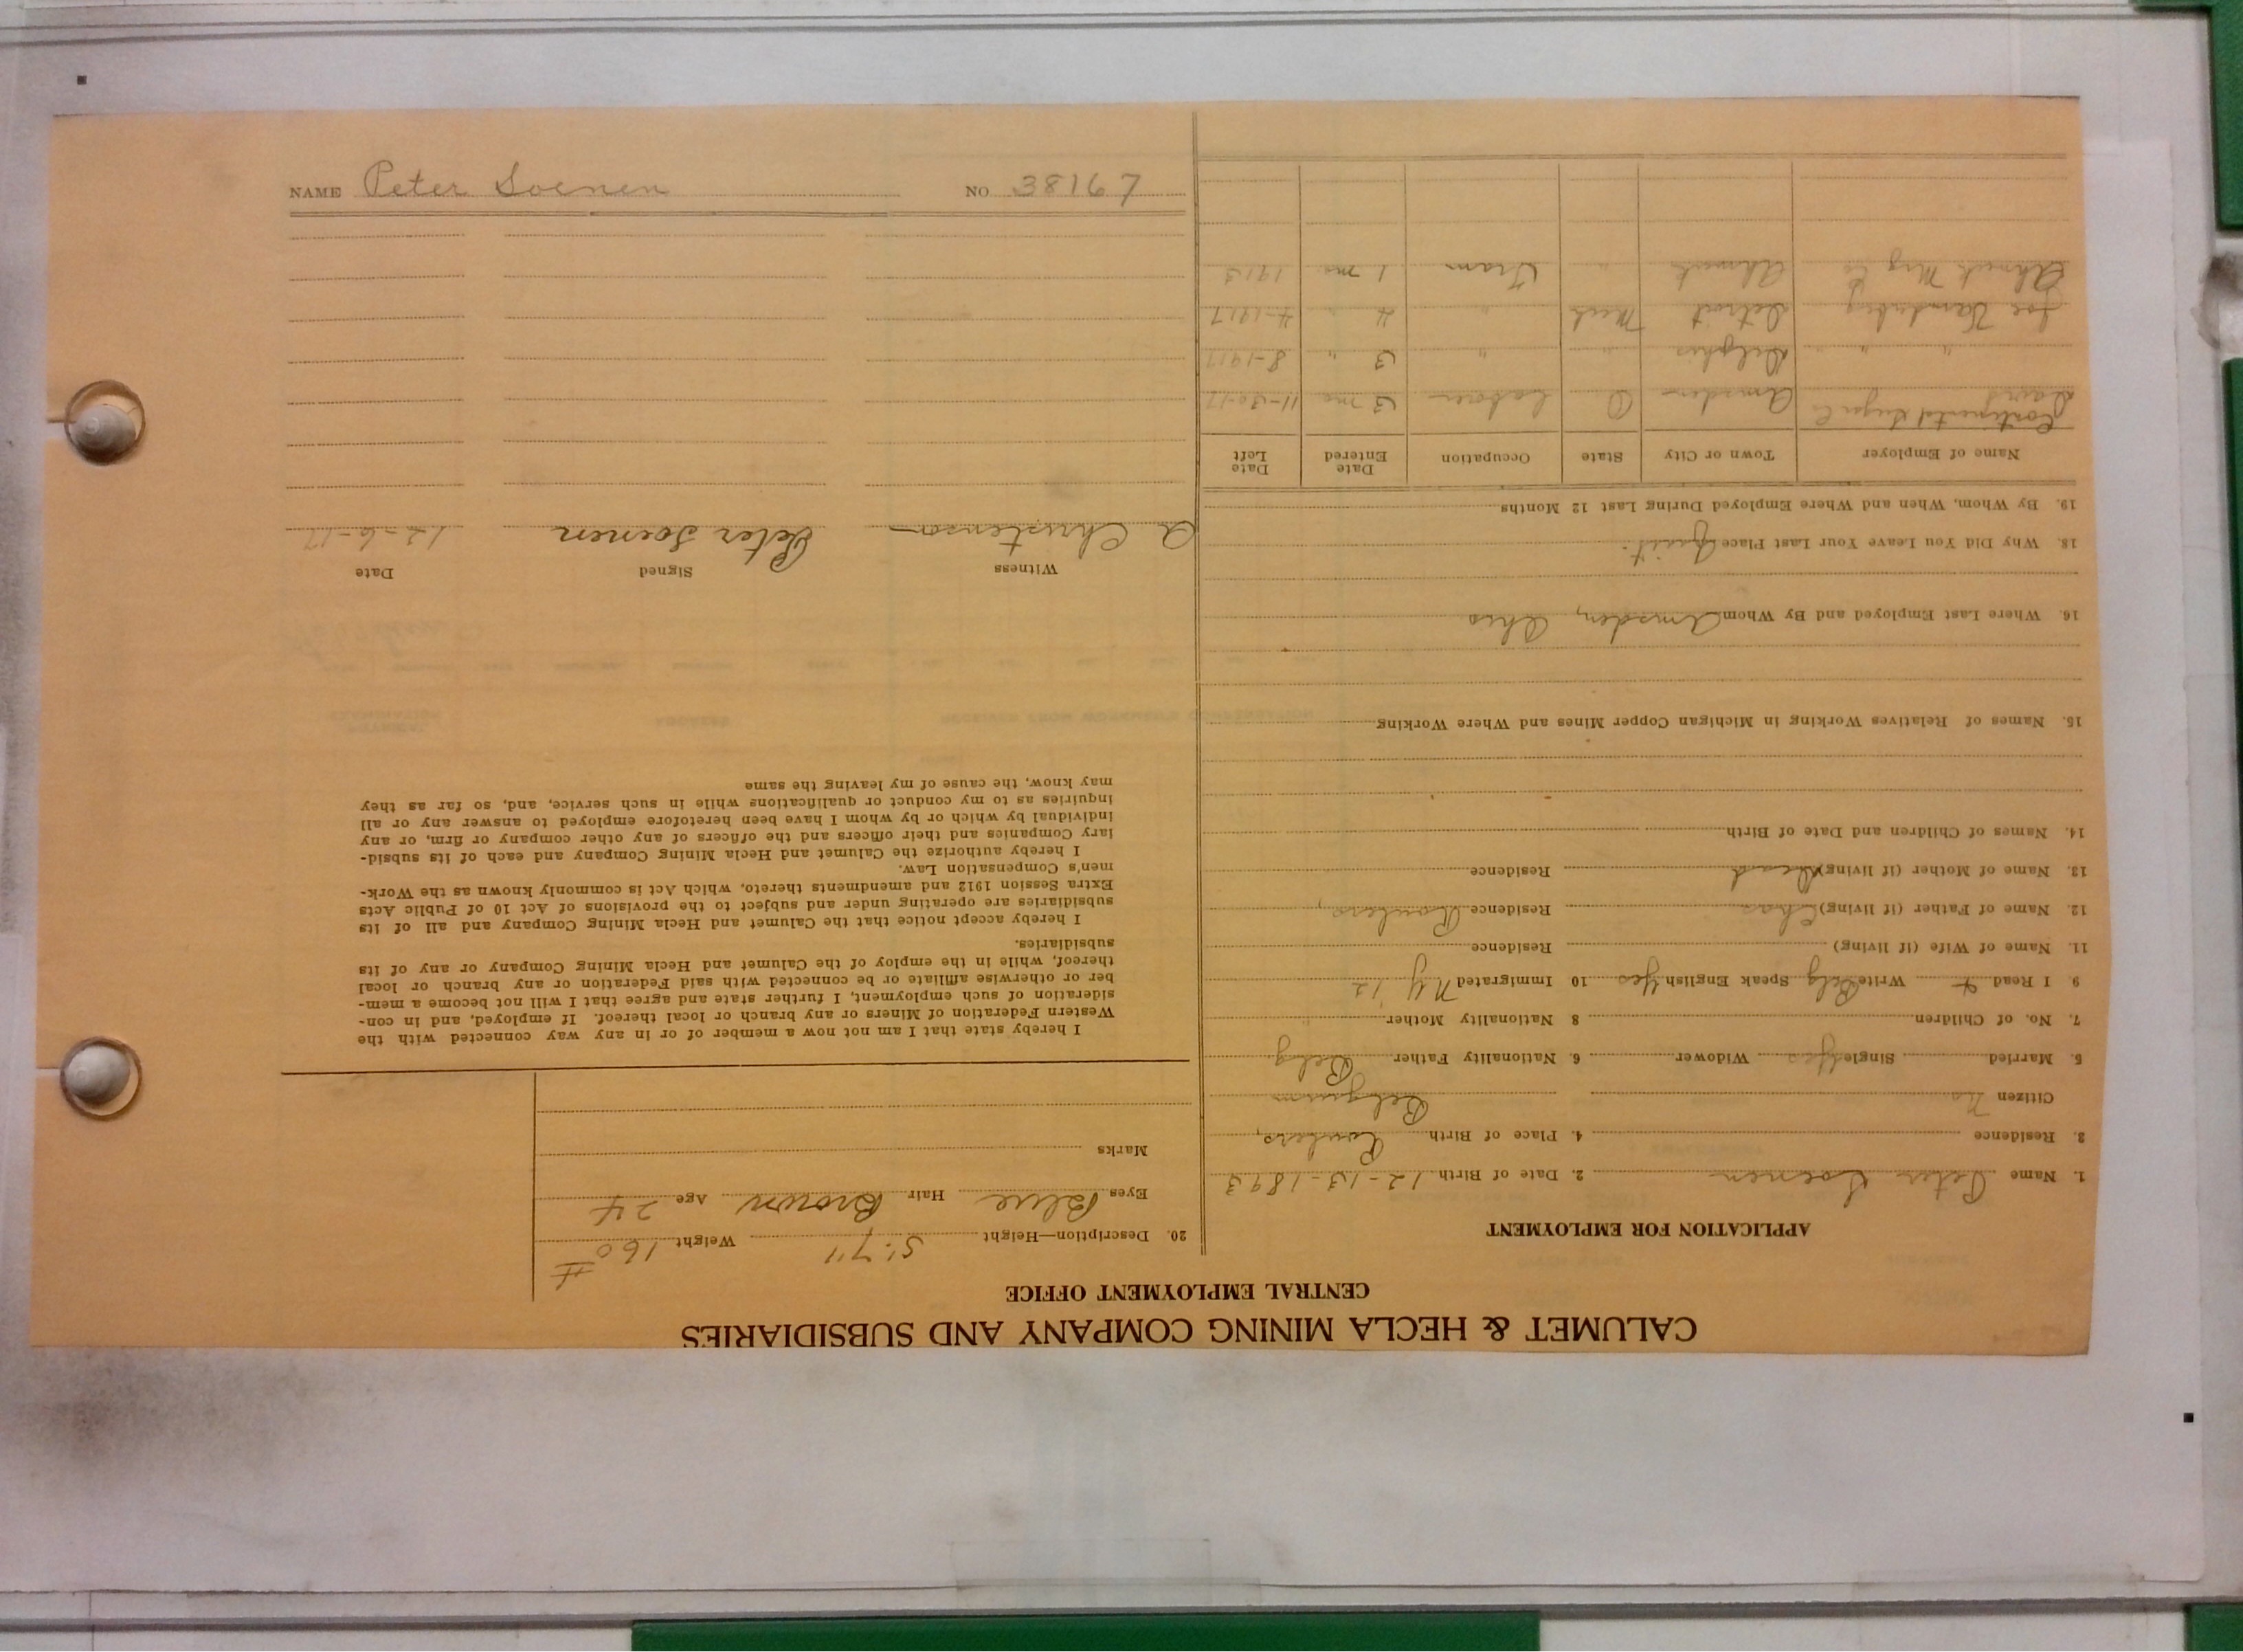 CALUMET & HECLA MINING COMPANY AND SUBSIDIARIES
CENTRAL EMPLOYMENT OFFICE
APPLICATION FOR EMPLOYMENT
1. Name Peter Soenen 2. Date of Birth 12-13-1893
3. Residence 4. Place of Birth Roulers,
Citizen No Belgium
5. Married Single Yes Widower 6. Nationality Father Belg
7. No. of Children 8 Nationality Mother
9 I Read & Write Belg Speak English Yes 10 Immigrated N Y '12
11. Name of Wife (if living) Residence
12. Name of Father (if living) Chas Residence Roulers,
13. Name of Mother (if living) Dead Residence
14. Names of Children and Date of Birth
15. Names of Relatives Working in Michigan Copper Mines and Where Working
16. Where Last Employed and By Whom Amsden, Ohio
18. Why Did You Leave Your Last Place Quit.
19. By Whom, When and Where Employed During Last 12 Months
Name of Employer Town or City State Occupation Date Entered Date Left
Continental Sugar Co Amsden O Laborer 3 mo 11-30-17
" " " Delphis " " 3 " 8-1917
Joe Detroit Mich " 4 " 4-1917
Ahmeek Mng Co Ahmeek " Tram 1 mo 1913
20. Description—Height 5' 7" Weight 160 #
Eyes Blue Hair Brown Age 24
Marks
I hereby state that I am not now a member of or in any way connected with the
Western Federation of Miners or any branch or local thereof. If employed, and in con-
sideration of such employment, I further state and agree that I will not become a mem-
ber or otherwise affiliate or be connected with said Federation or any branch or local
thereof, while in the employ of the Calumet and Hecla Mining Company or any of its
subsidiaries.
I hereby accept notice that the Calumet and Hecla Mining Company and all of its
subsidiaries are operating under and subject to the provisions of Act 10 of Public Acts
Extra Session 1912 and amendments thereto, which Act is commonly known as the Work-
men's Compensation Law.
I hereby authorize the Calumet and Hecla Mining Company and each of its subsid-
iary Companies and their officers and the officers of any other company or firm, or any
individual by which or by whom I have been heretofore employed to answer any or all
inquiries as to my conduct or qualifications while in such service, and, so far as they
may know, the cause of my leaving the same
Witness Signed Date
A Christenson Peter Soenen 12-6-17
NAME Peter Soenen NO 38167